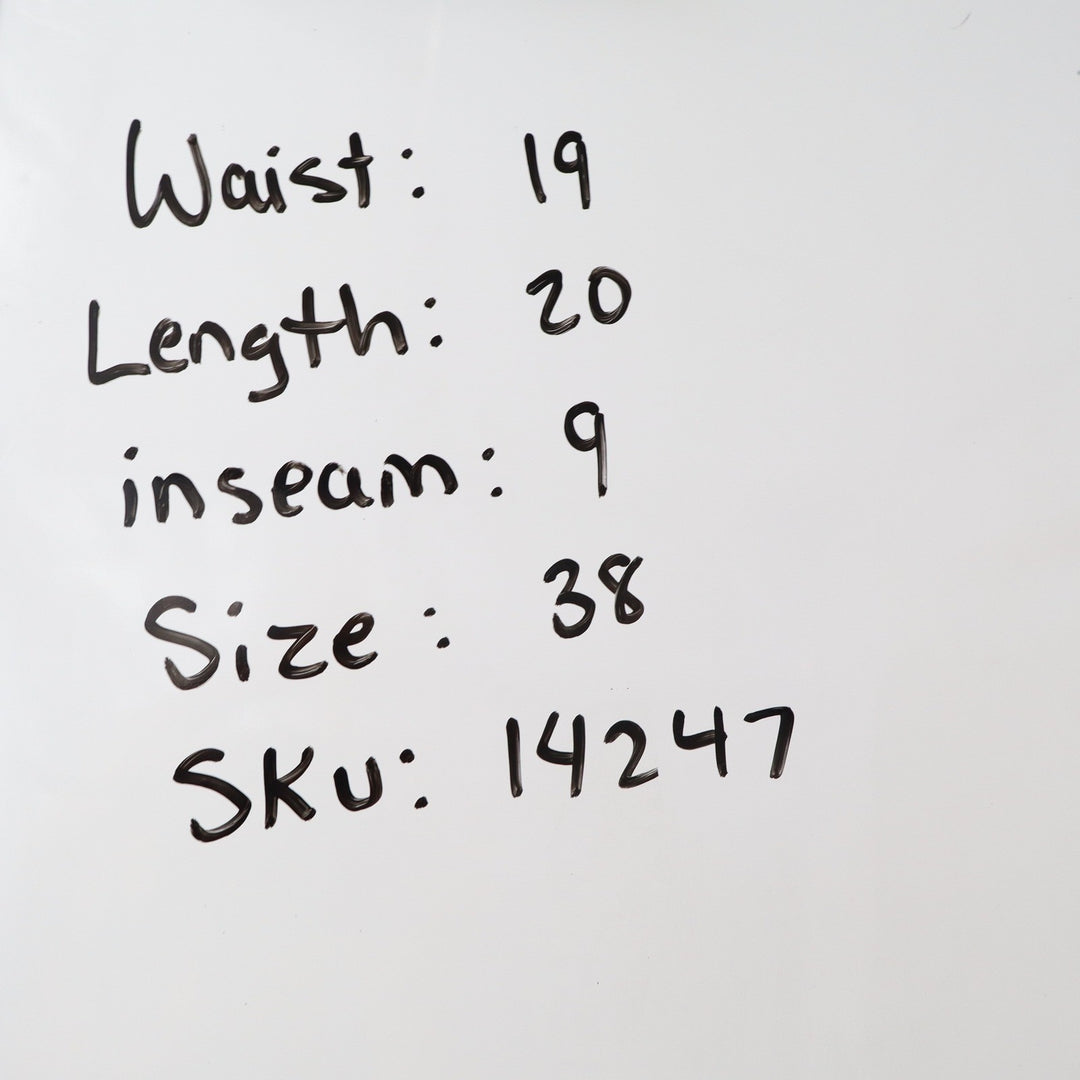 Waist: 19
Length: 20
inseam: 9
Size: 38
SKU: 14247